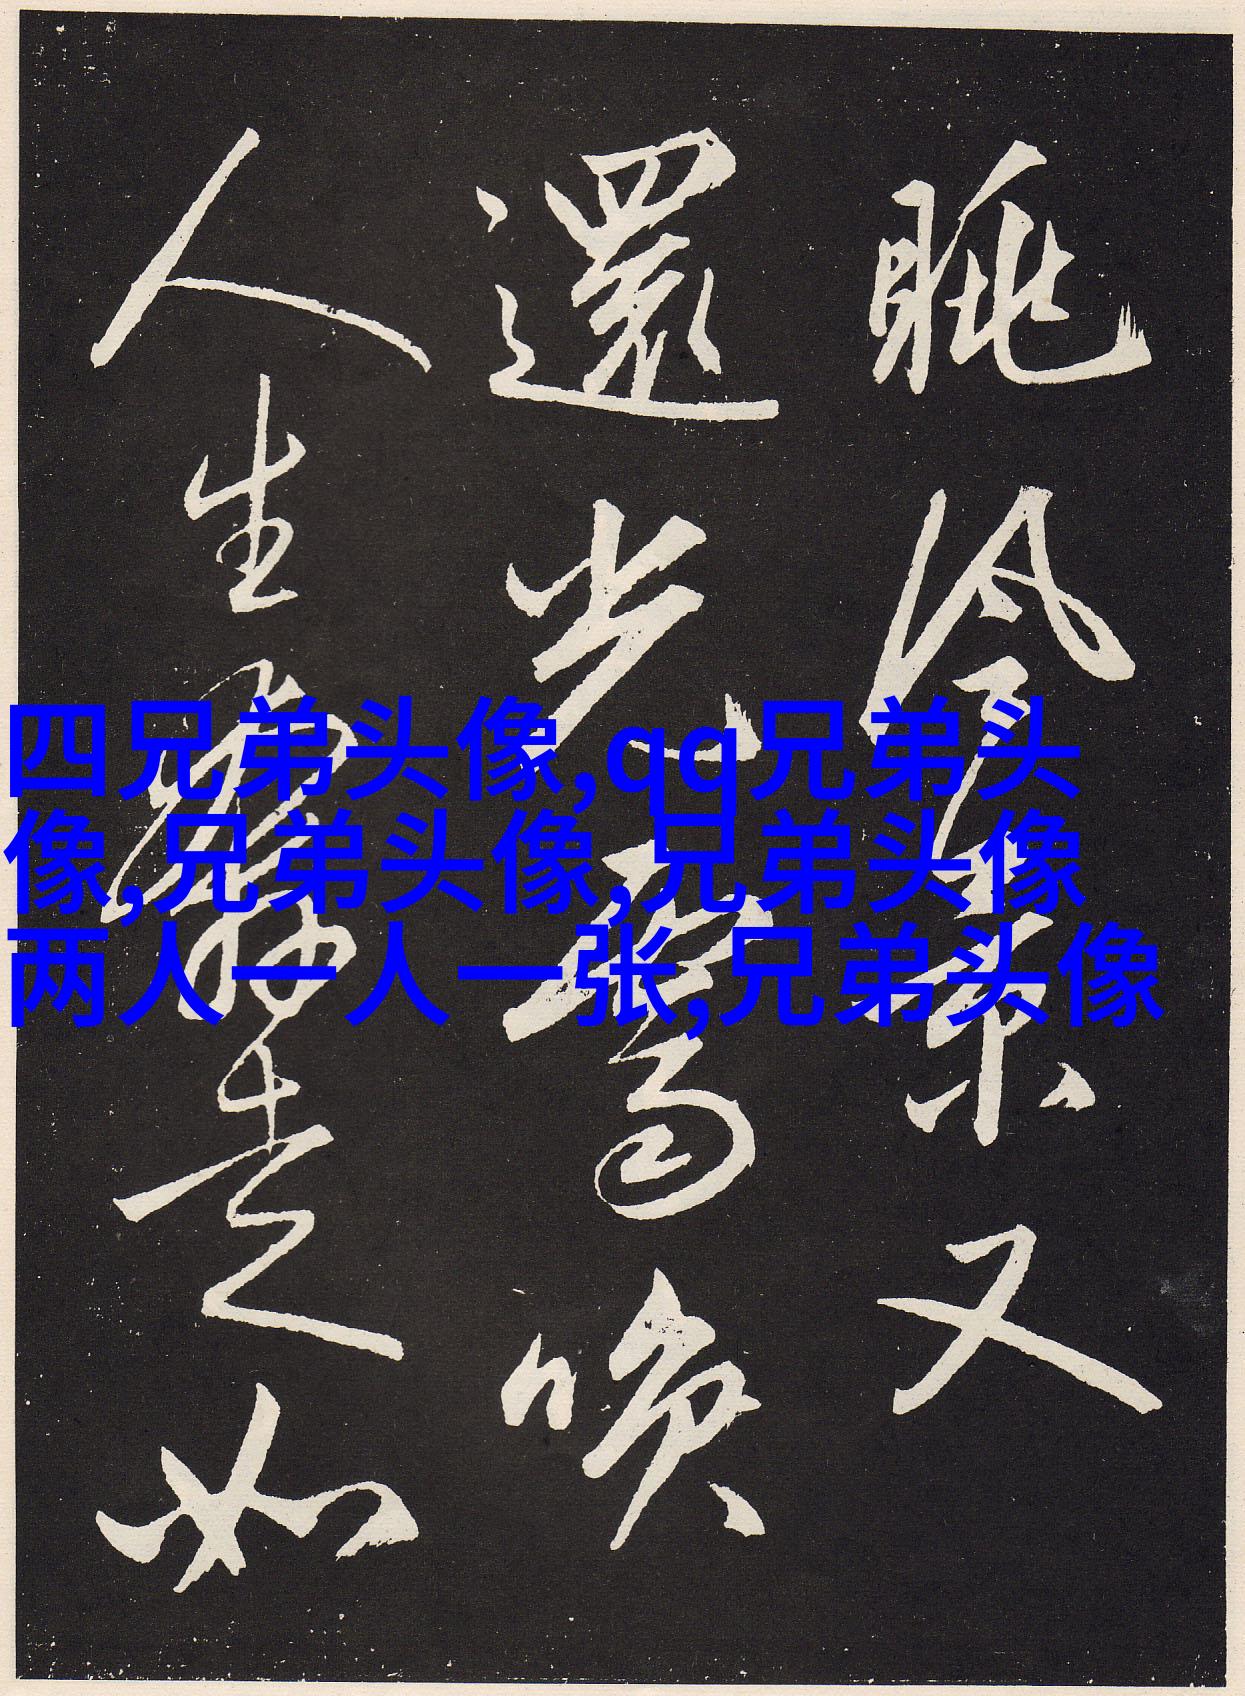 眺冷泉又
還光亭喚
人生歸去如
四兄弟头像,qq兄弟头
像,兄弟头像,兄弟头像
两人一人一张,兄弟头像